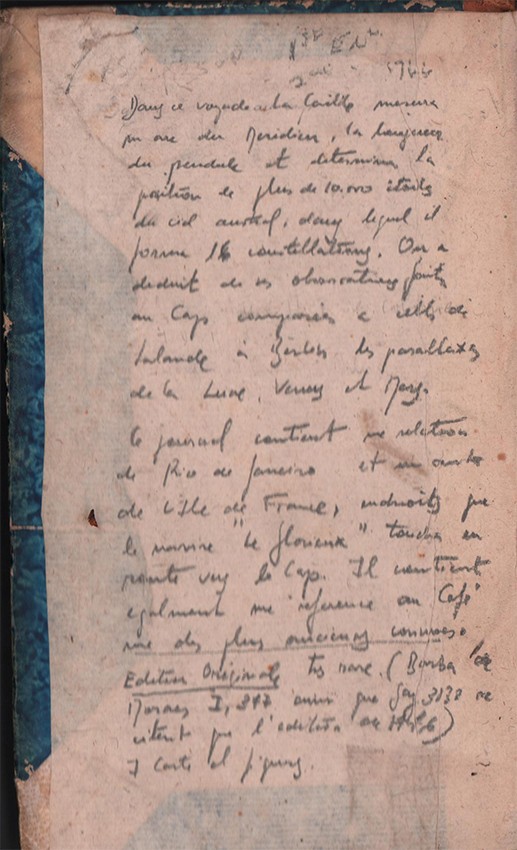 1ère Edn.
1944
Dans ce voyage la Caille mesura
un arc du Meridien, la longueur
du pendule et determina la
position de plus de 10.000 étoiles
du ciel austral, dans lequel il
forma 16 constellations. On a
deduit de ses observations faites
au Cap comparées a celles de
Lalande à Berlin les parallaxes
de la Lune, Venus et Mars.
Le journal contient une relation
de Rio de Janeiro et un autre
de L'Ile de France, endroits que
le navire "Le Glorieux" toucha en
route vers le Cap. Il contient
egalement une reference au Café
une des plus anciennes connues.
Edition Originale tres rare. (Borba de
Moraes I, 387 ainsi que Gay 3138 ne
citent que l'edition de 1776)
1 Carte et figures.